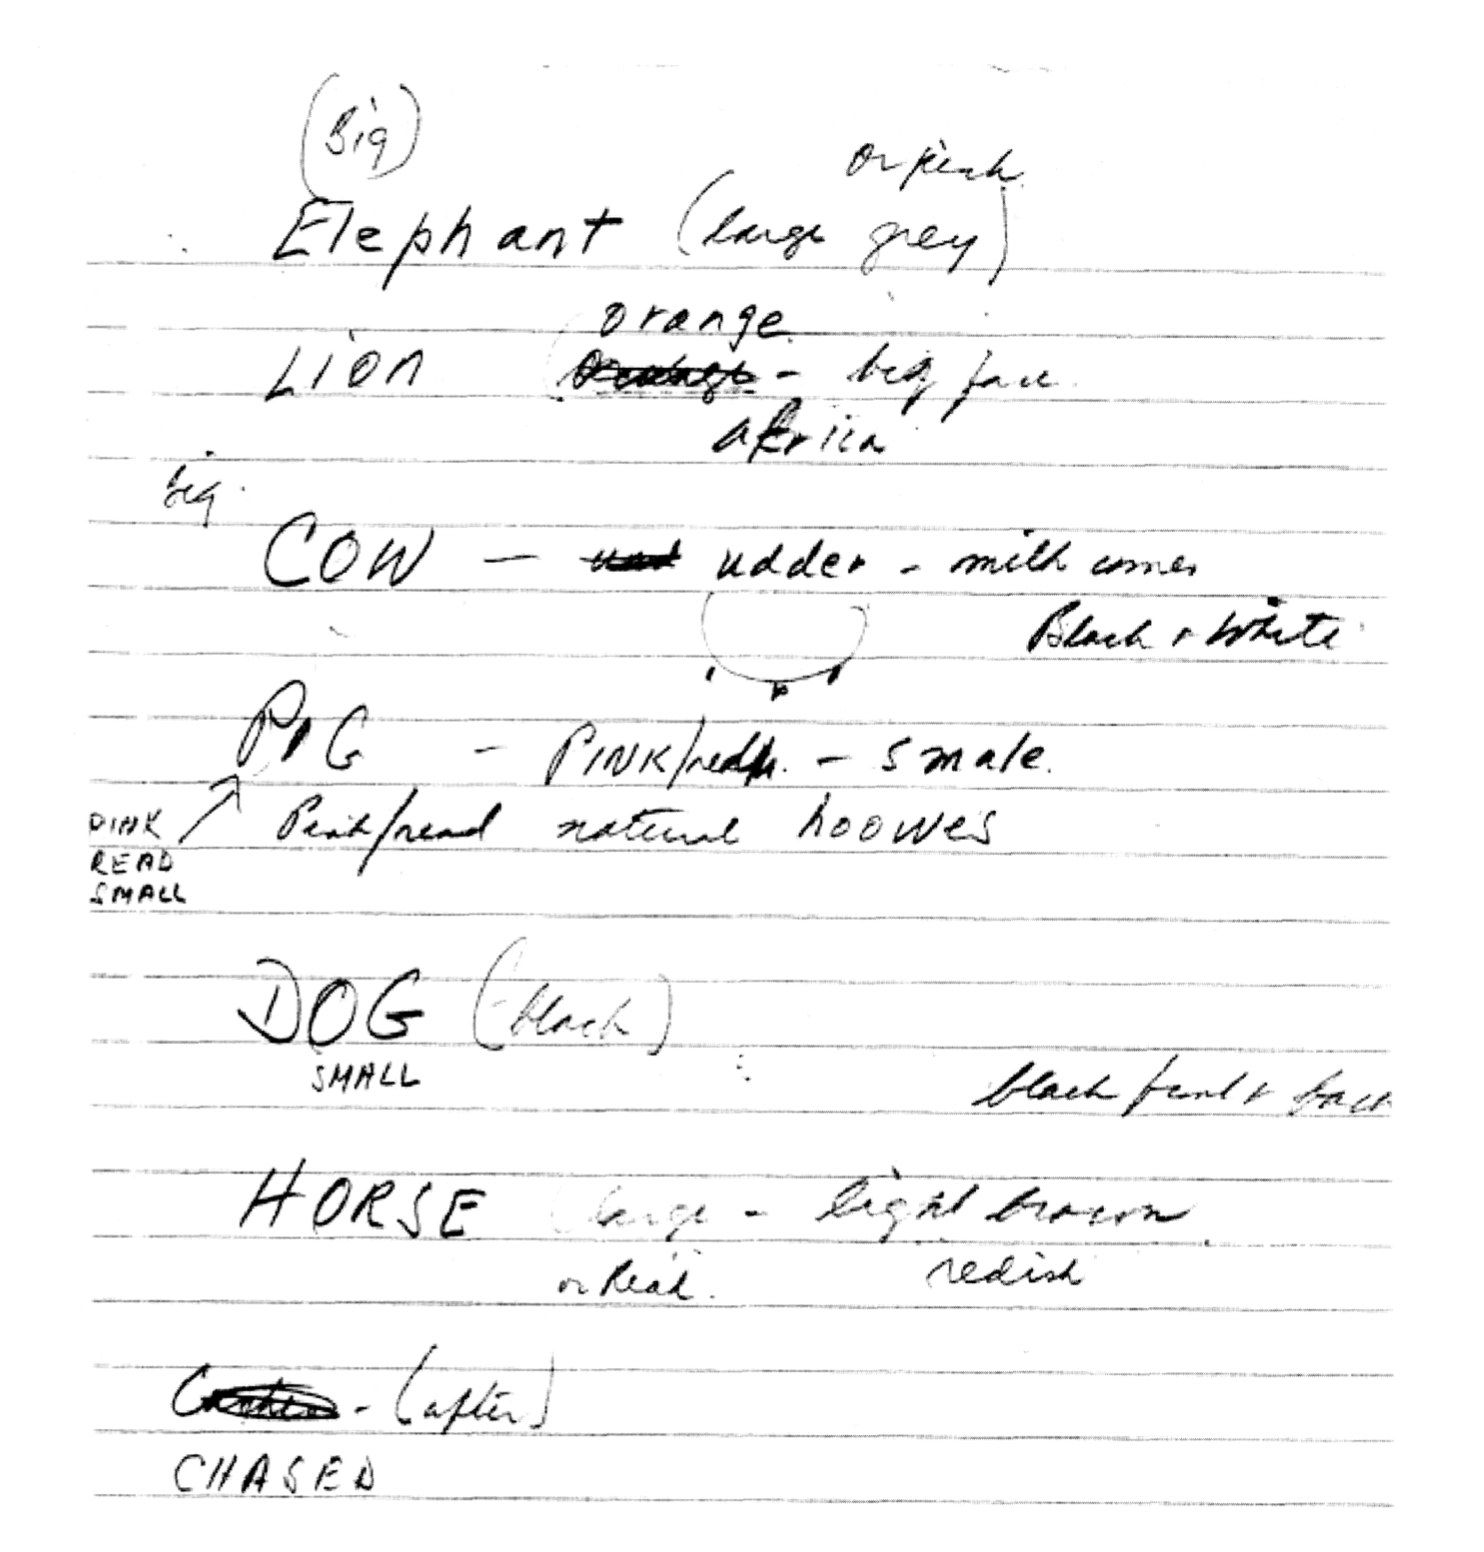 (Big)
or pink
Elephant (large grey)
orange
Lion - big face
africa
big
COW - udder - milk comes
Black + White
PIG - PINK/ - smale.
PINK Pink/read natural hoowes
READ
SMALL
DOG (black)
SMALL
black + back
HORSE (large - light brown
or Read. redish
- (after)
CHASED